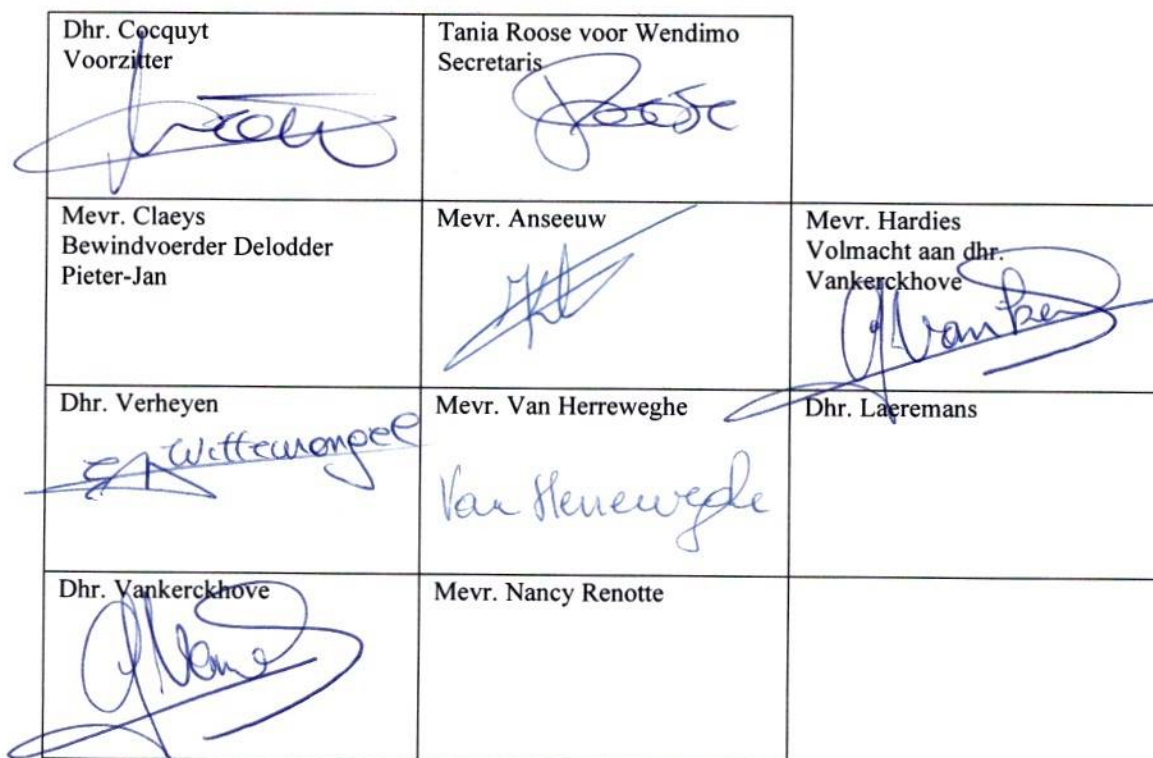 Dhr. Cocquyt
Voorzitter
Tania Roose voor Wendimo
Secretaris
Roose
Mevr. Claeys
Bewindvoerder Delodder
Pieter-Jan
Mevr. Anseeuw
Mevr. Hardies
Volmacht aan dhr.
Vankerckhove
Dhr. Verheyen
Wittewrongel
Mevr. Van Herreweghe
Van Herreweghe
Dhr. Laeremans
Dhr. Vankerckhove
Mevr. Nancy Renotte